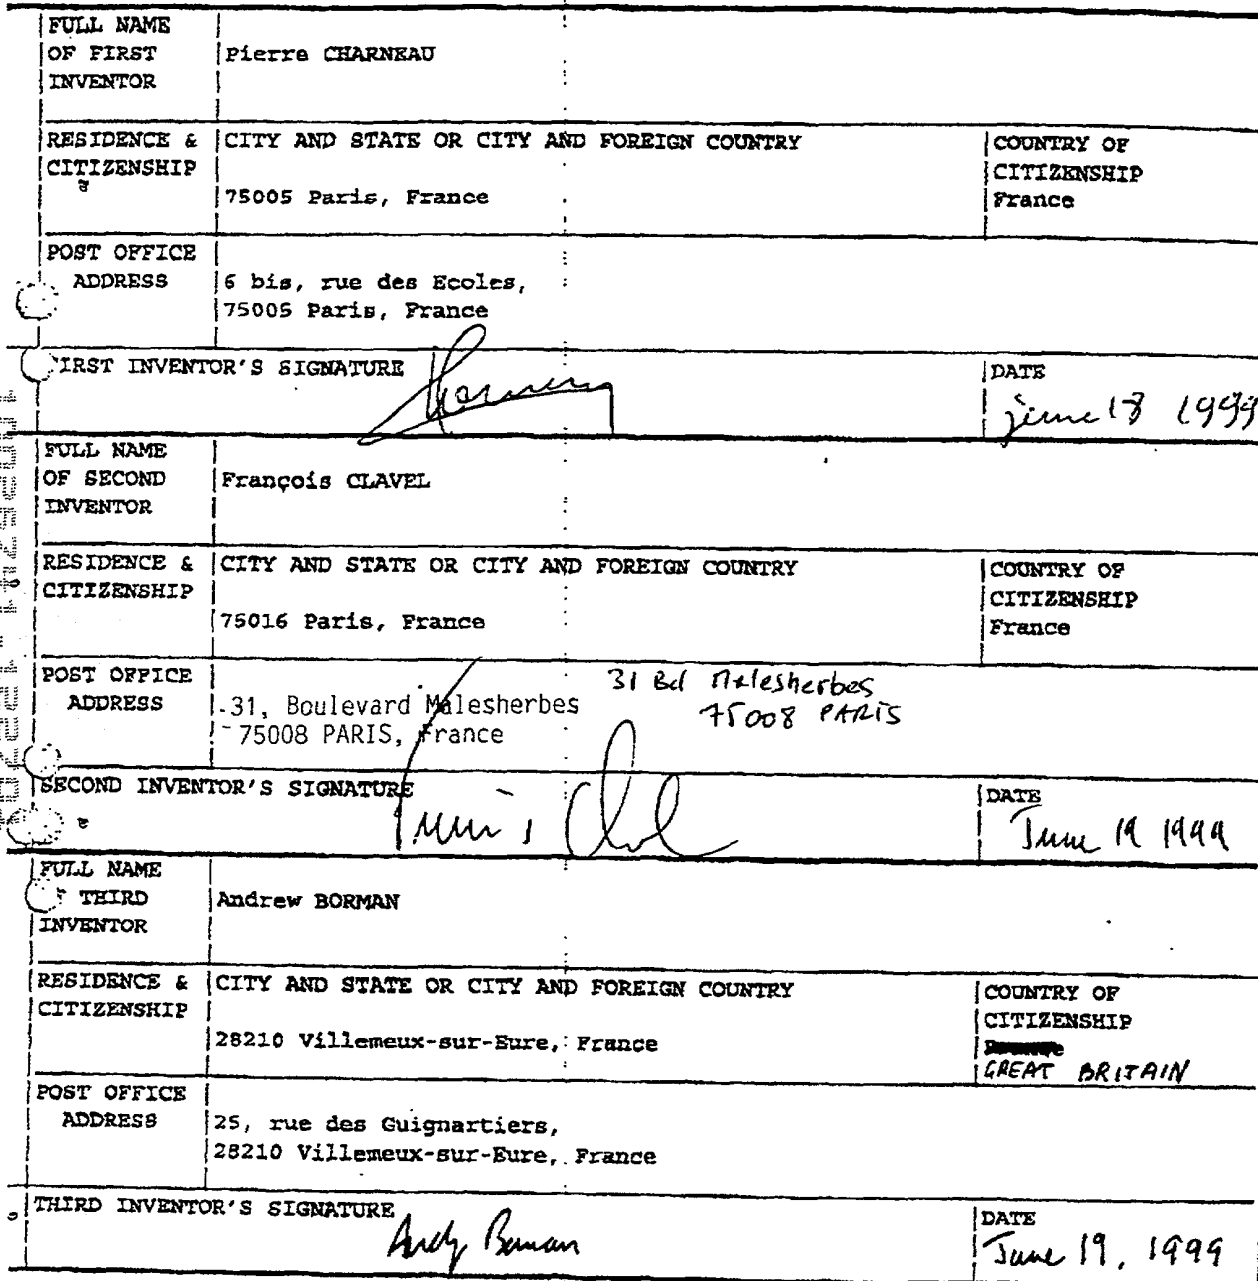 FULL NAME
OF FIRST
INVENTOR
Pierre CHARNEAU
RESIDENCE &
CITIZENSHIP
CITY AND STATE OR CITY AND FOREIGN COUNTRY
75005 Paris, France
COUNTRY OF
CITIZENSHIP
France
POST OFFICE
ADDRESS
6 bis, rue des Ecoles,
75005 Paris, France
FIRST INVENTOR'S SIGNATURE
DATE
june 18 1999
FULL NAME
OF SECOND
INVENTOR
François CLAVEL
RESIDENCE &
CITIZENSHIP
CITY AND STATE OR CITY AND FOREIGN COUNTRY
75016 Paris, France
COUNTRY OF
CITIZENSHIP
France
POST OFFICE
ADDRESS
31, Boulevard Malesherbes
75008 PARIS, France
31 Bd Malesherbes
75008 PARIS
SECOND INVENTOR'S SIGNATURE
DATE
June 19 1999
FULL NAME
OF THIRD
INVENTOR
Andrew BORMAN
RESIDENCE &
CITIZENSHIP
CITY AND STATE OR CITY AND FOREIGN COUNTRY
28210 Villemeux-sur-Eure, France
COUNTRY OF
CITIZENSHIP
GREAT BRITAIN
POST OFFICE
ADDRESS
25, rue des Guignartiers,
28210 Villemeux-sur-Eure, France
THIRD INVENTOR'S SIGNATURE
Andy Borman
DATE
June 19, 1999